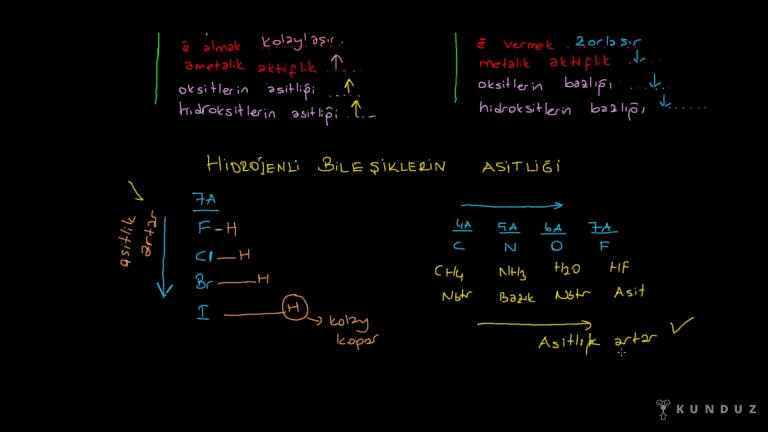 ē almak kolaylaşır..
ametalik aktiflik ↑....
oksitlerin asitliği ..↑..
hidroksitlerin asitliği .↑...
ē vermek ..zorlaşır
metalik aktiflik ..↓...
oksitlerin bazlığı ....↓..
hidroksitlerin bazlığı ..↓......
HİDROJENLİ BİLEŞİKLERİN ASİTLİĞİ
asitlik artar
7A
F-H
Cl-H
Br-H
I-H → kolay
kopar
4A 5A 6A 7A
C N O F
CH4 NH3 H2O HF
Nötr Bazik Nötr Asit
Asitlik artar ✓
KUNDUZ